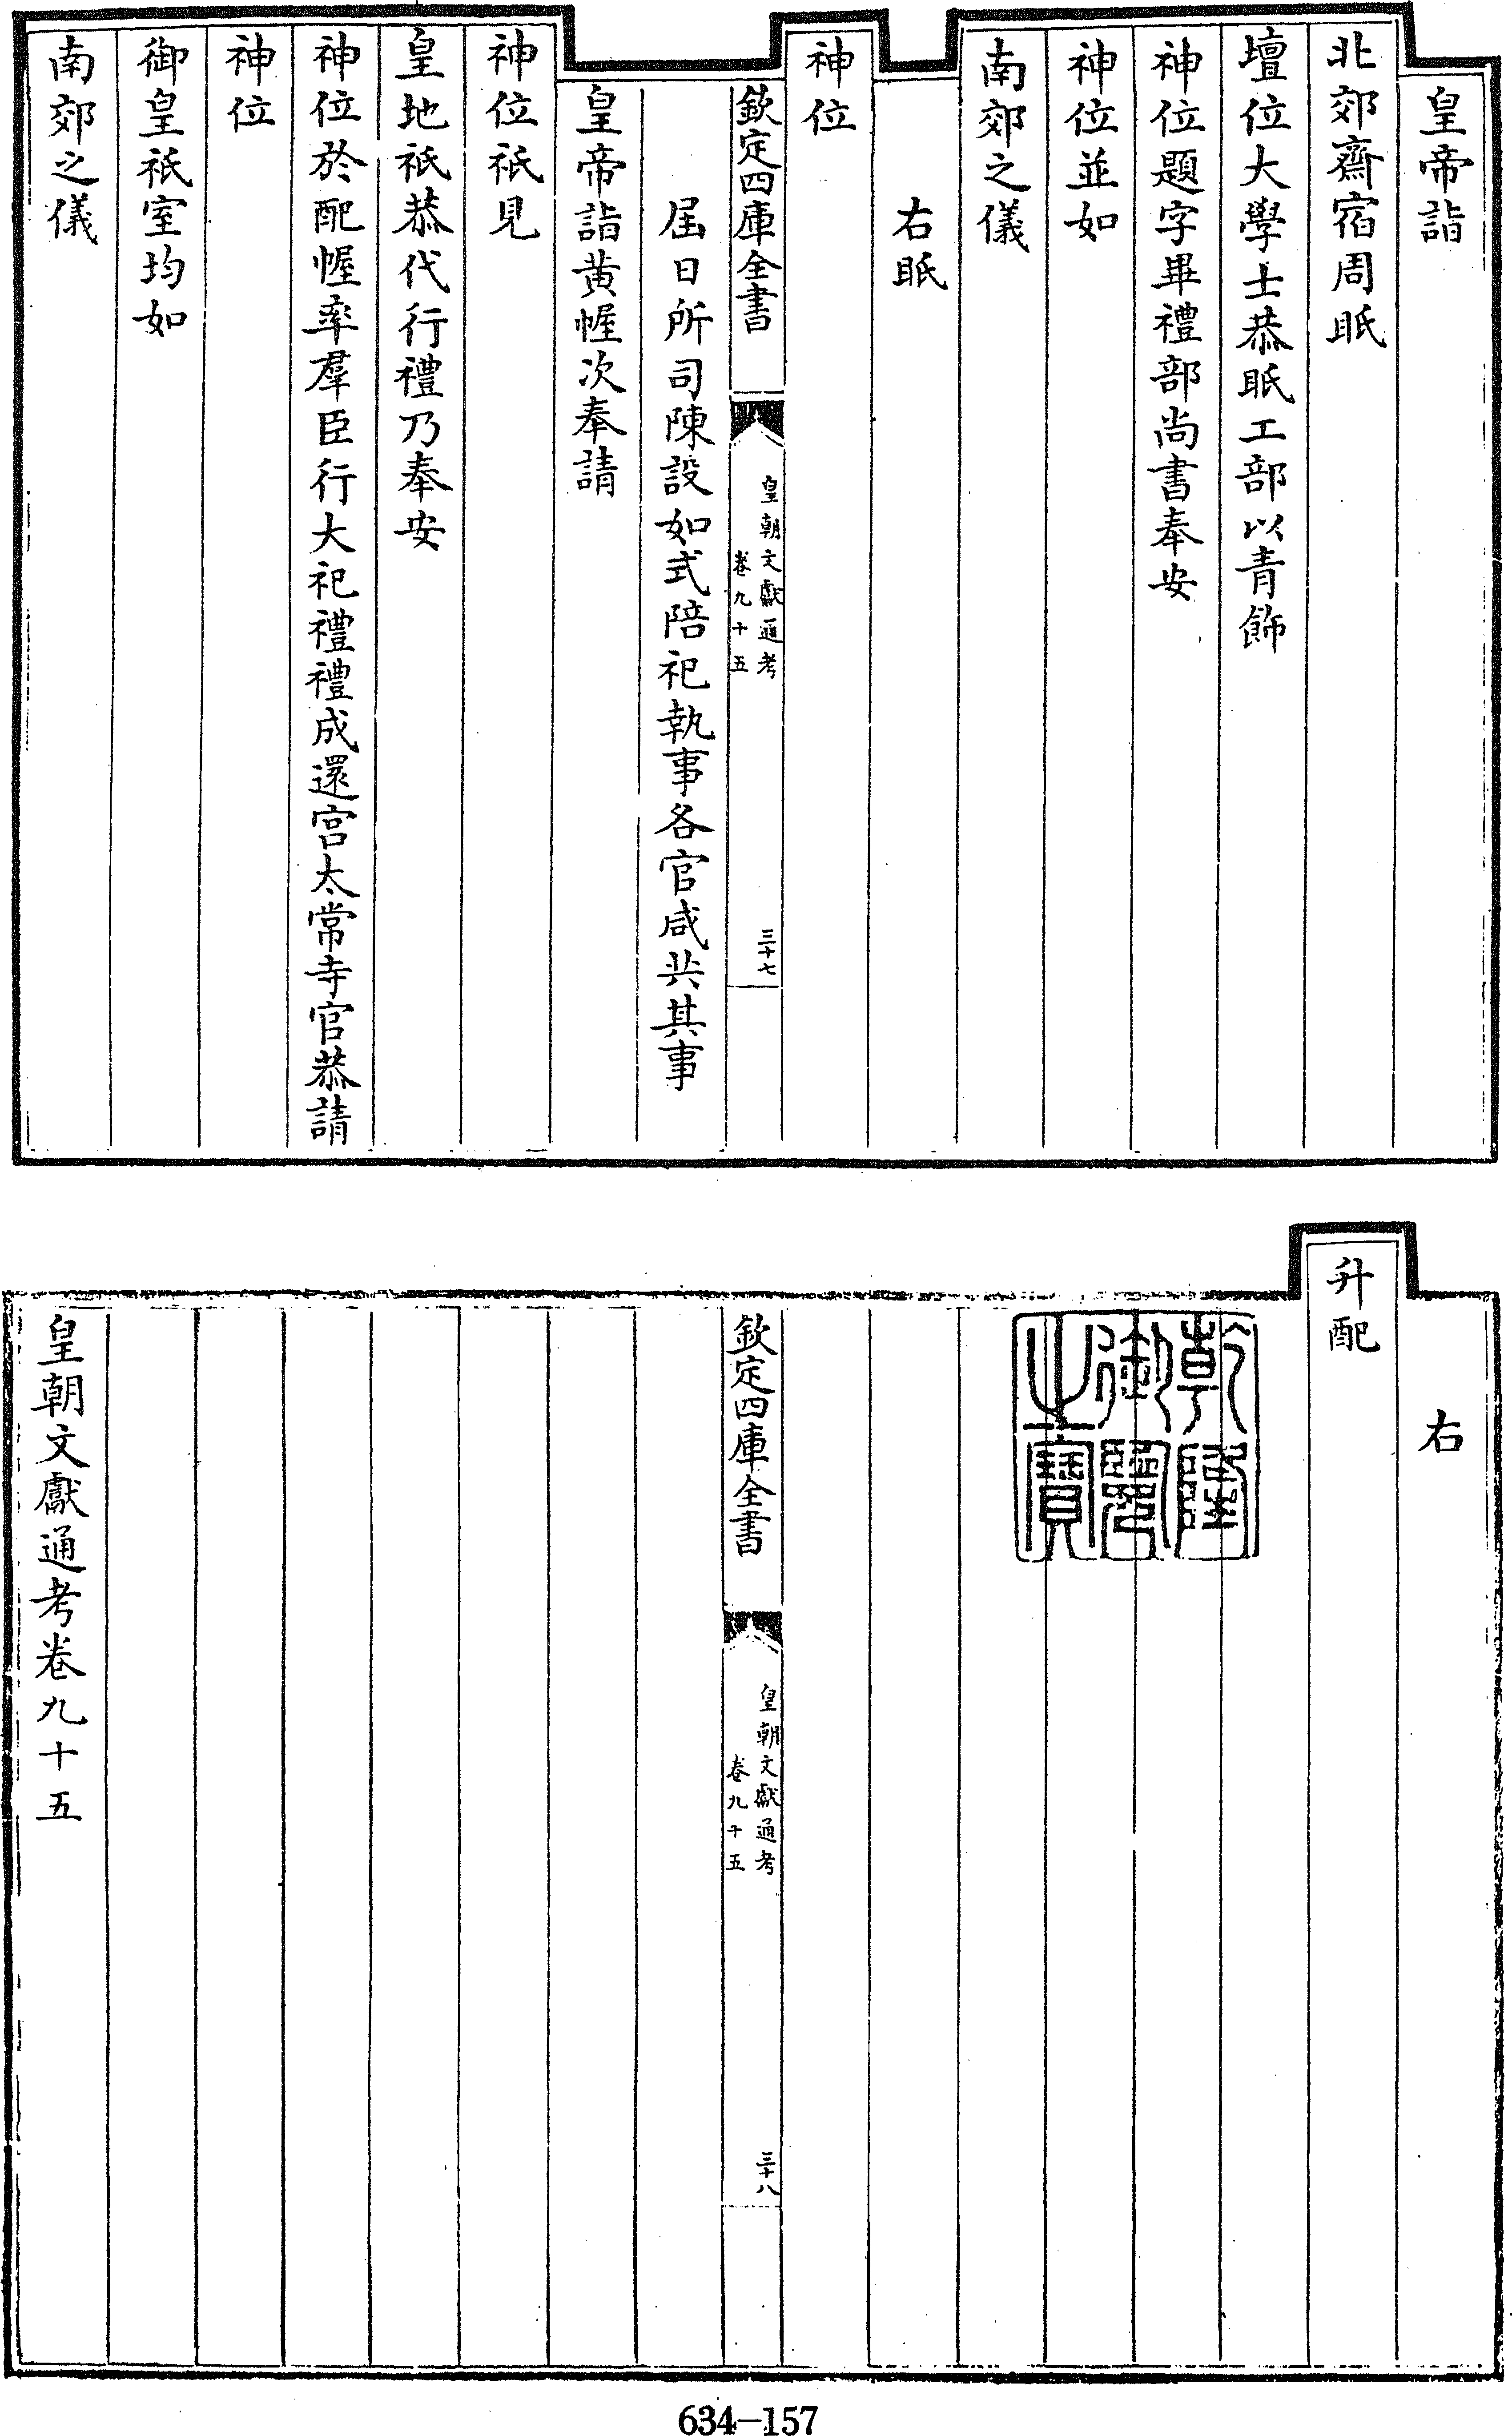 皇帝詣
北郊齋宿周眡
壇位大學士恭眡工部以青飾
神位題字畢禮部尚書奉安
神位並如
南郊之儀
右眡
神位
欽定四庫全書
皇朝文獻通考
卷九十五
三十七
屆日所司陳設如式陪祀執事各官咸共其事
皇帝詣黃幄次奉請
神位祇見
皇地祇恭代行禮乃奉安
神位於配幄率羣臣行大祀禮禮成還宮太常寺官恭請
神位
御皇祇室均如
南郊之儀
右
升配
乾隆
御覽
之寶
欽定四庫全書
皇朝文獻通考
卷九十五
三十八
皇朝文獻通考卷九十五
634-157